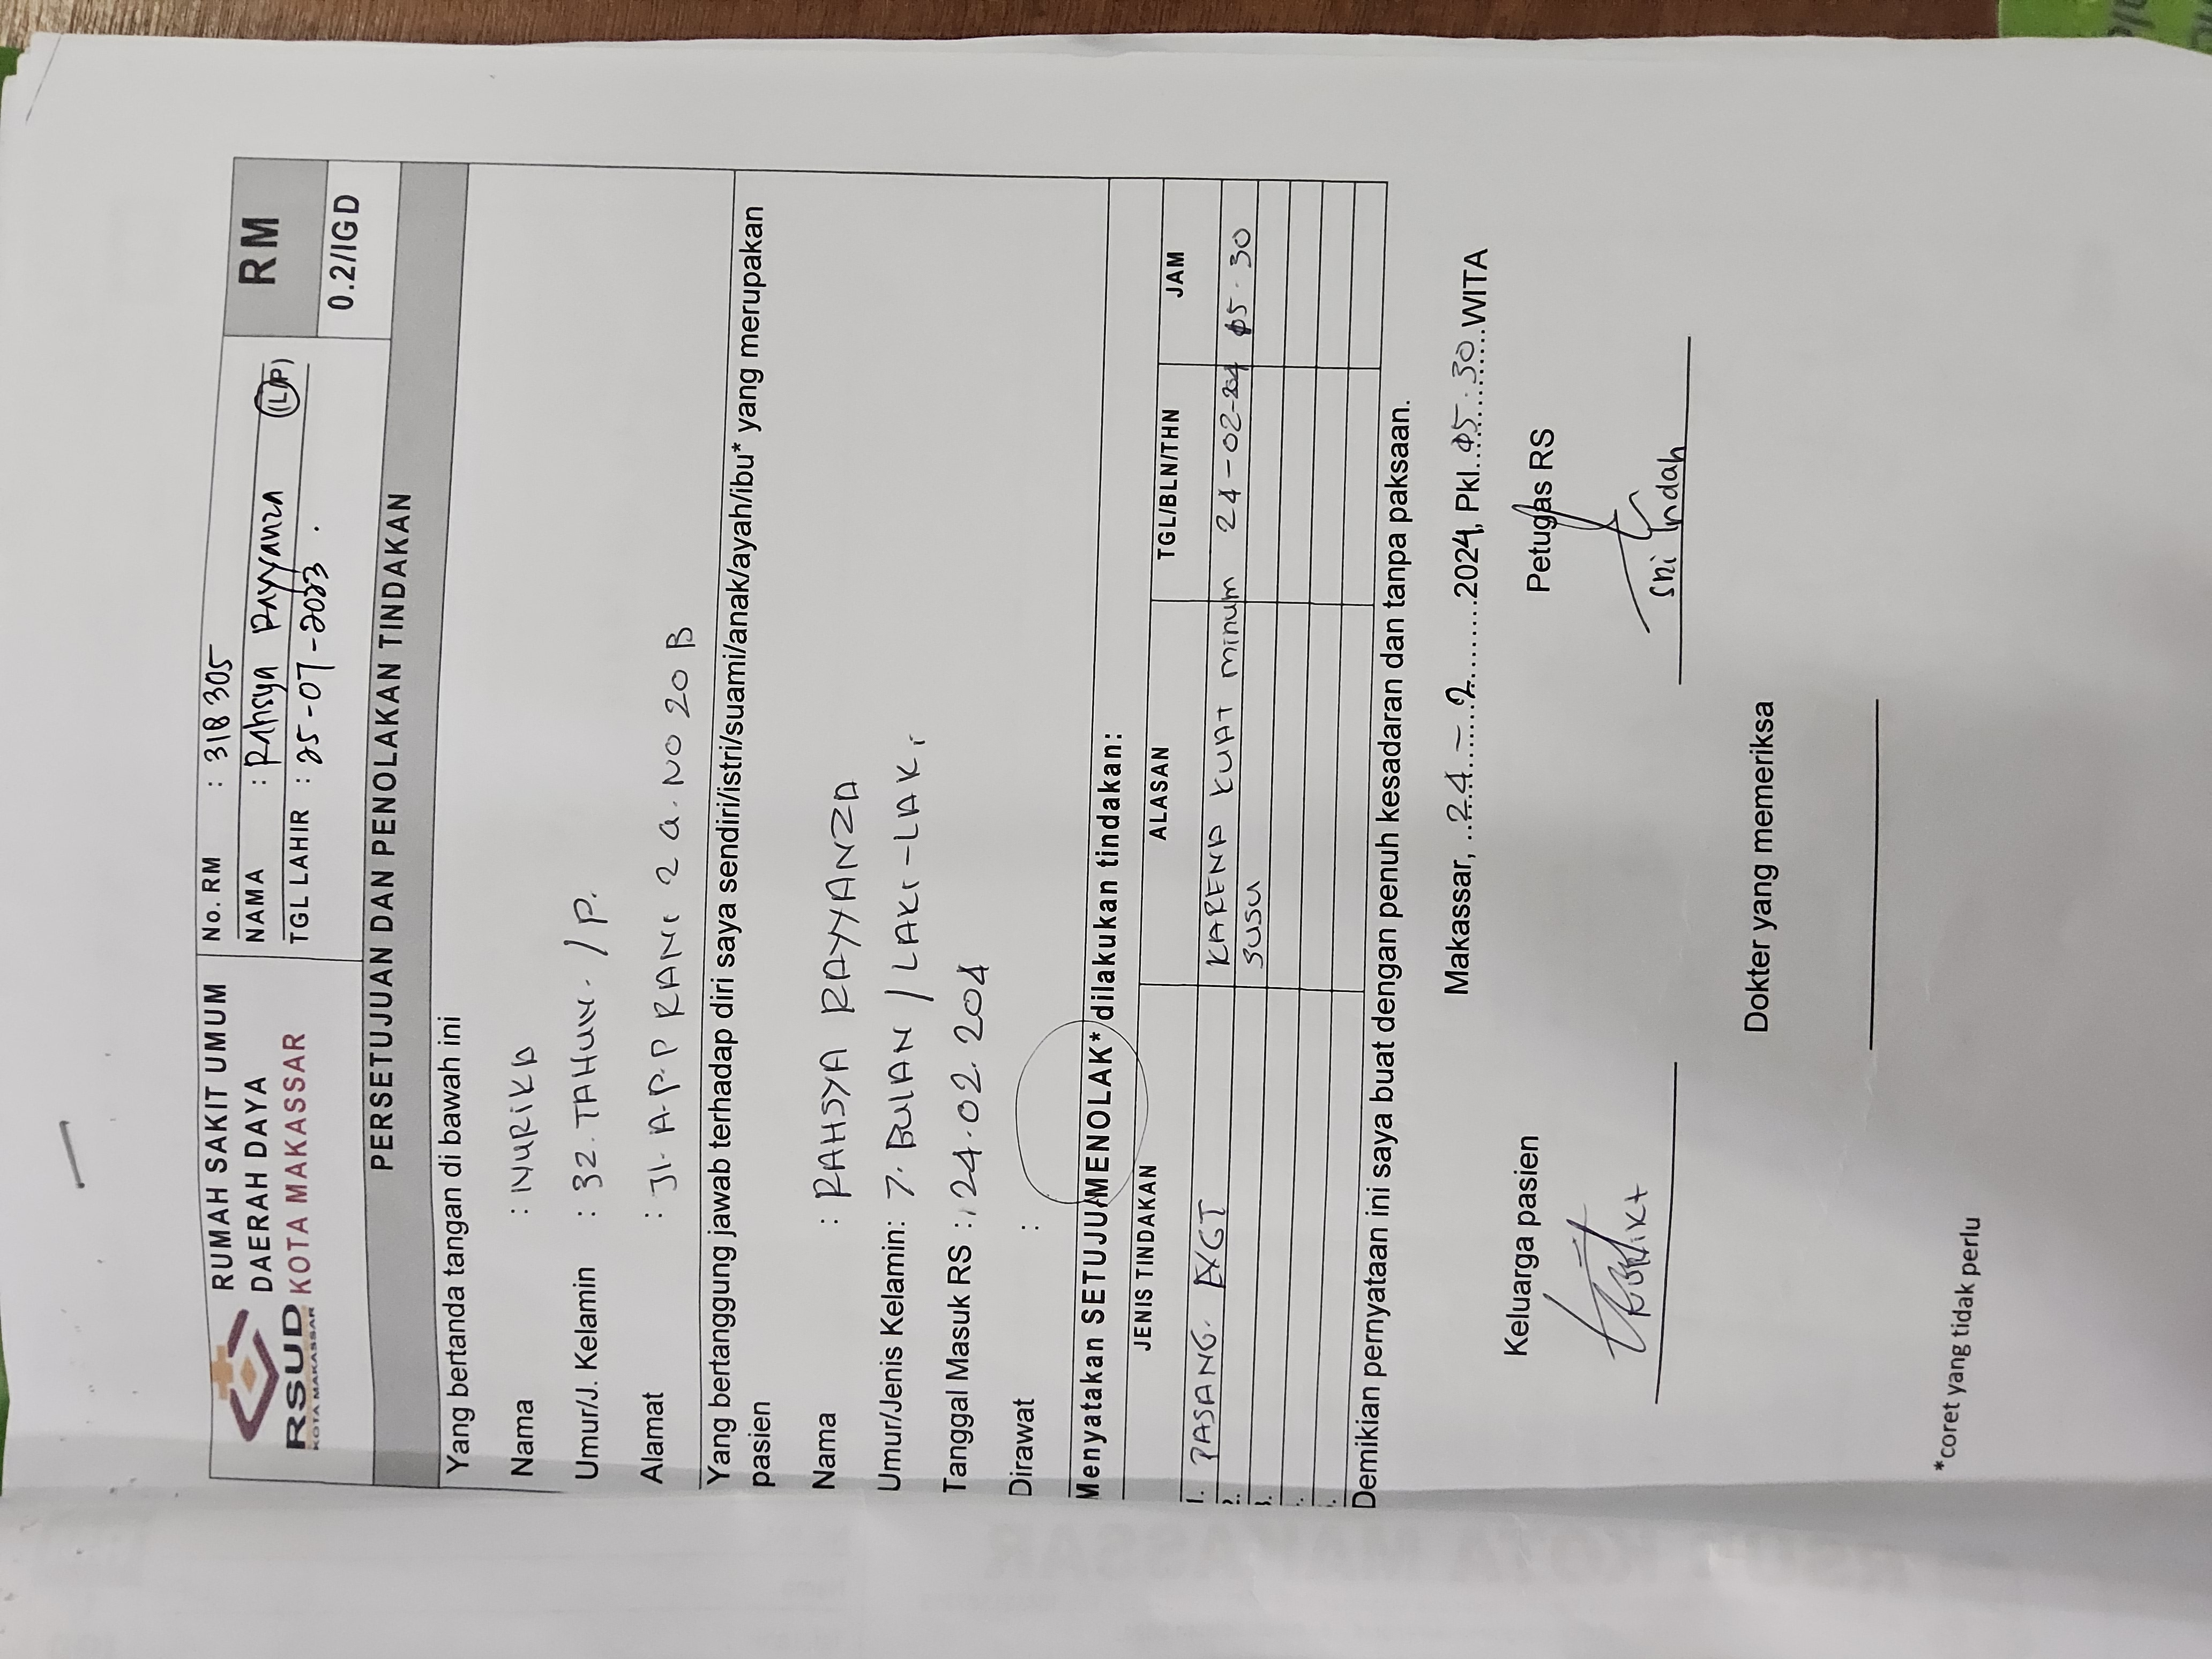 RSUD
KOTA MAKASSAR
RUMAH SAKIT UMUM
DAERAH DAYA
KOTA MAKASSAR
No. RM : 318 305
NAMA : Rahsya Rayyanza (L/P)
TGL LAHIR : 25-07-2023.
RM
0.2/IGD
PERSETUJUAN DAN PENOLAKAN TINDAKAN
Yang bertanda tangan di bawah ini
Nama : NURIKA
Umur/J. Kelamin : 32. TAHUN. / P.
Alamat : Jl. A.P.P RANI 2 a. NO 20 B
Yang bertanggung jawab terhadap diri saya sendiri/istri/suami/anak/ayah/ibu* yang merupakan
pasien
Nama : RAHSYA RAYYANZA
Umur/Jenis Kelamin: 7. BULAN / LAKI-LAKI
Tanggal Masuk RS : 24.02.204
Dirawat :
Menyatakan SETUJU/MENOLAK* dilakukan tindakan:
JENIS TINDAKAN ALASAN TGL/BLN/THN JAM
1. PASANG. KARENA KUAT minum 24-02-204 05.30
2. SUSU
3.
Demikian pernyataan ini saya buat dengan penuh kesadaran dan tanpa paksaan.
Makassar, 24 - 2 2024, Pkl. 05.30 WITA
Keluarga pasien Petugas RS
Sri Indah
Dokter yang memeriksa
*coret yang tidak perlu